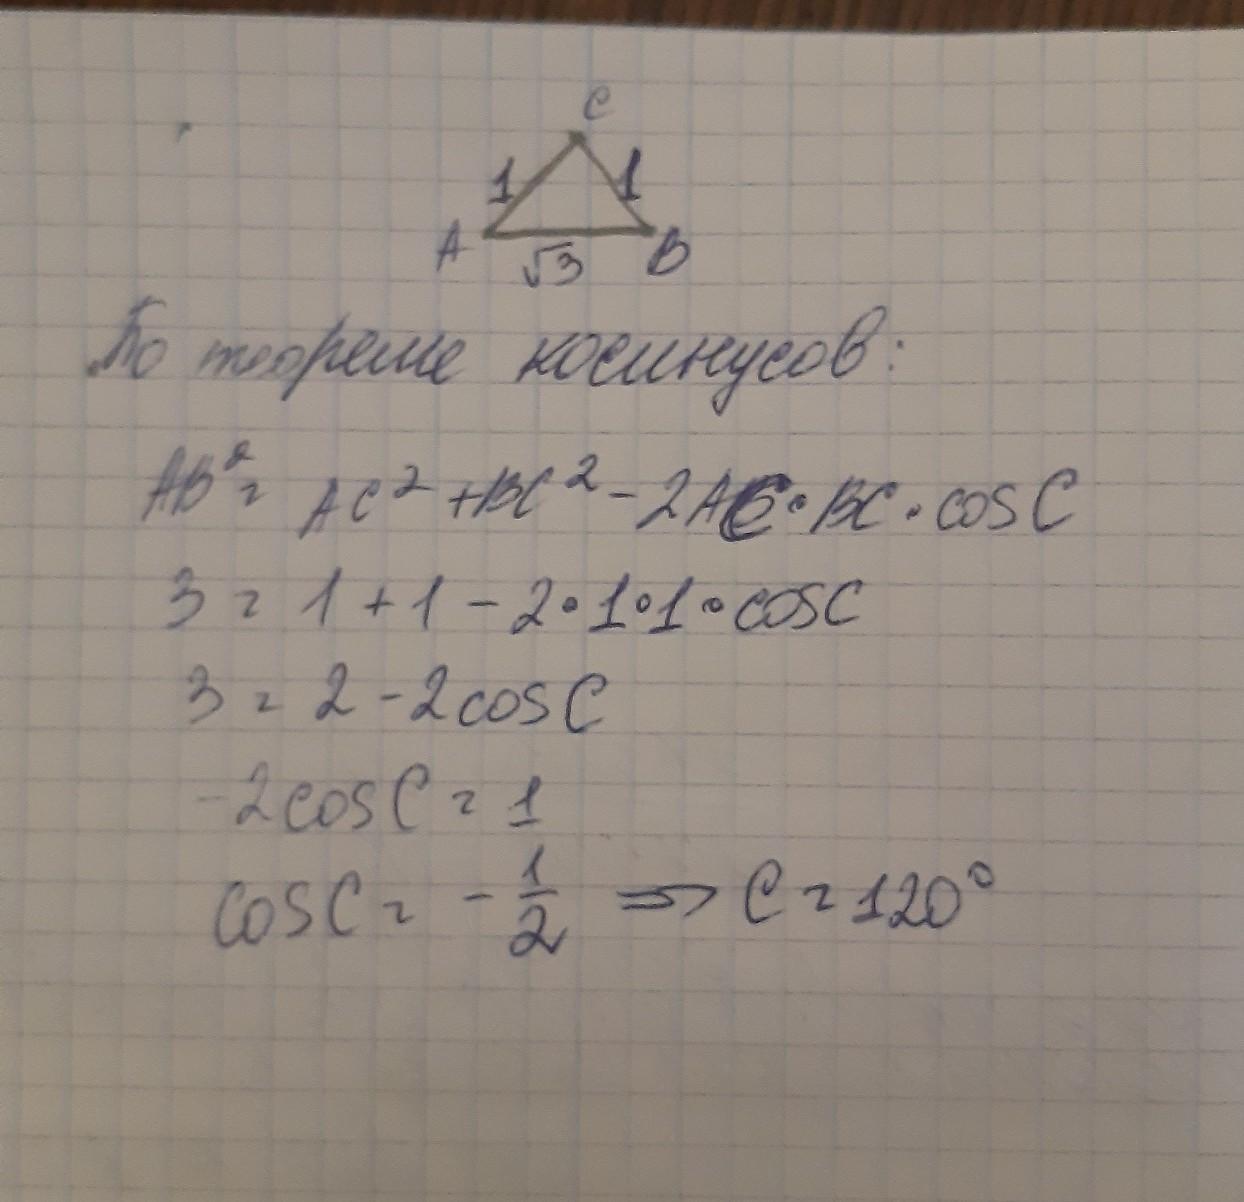 C
1 1
A √3 B
По теореме косинусов:
AB² = AC² + BC² - 2AC · BC · cos C
3 = 1 + 1 - 2 · 1 · 1 · cos C
3 = 2 - 2 cos C
-2 cos C = 1
cos C = - 1/2 ⇒ C = 120°